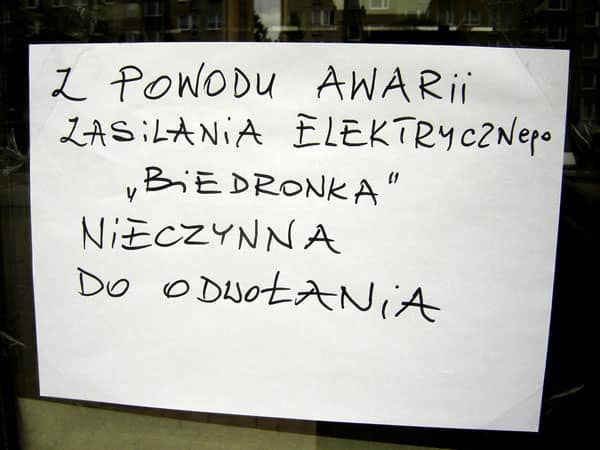 Z POWODU AWARii
ZASiLANiA ELEKTRYCZNego
„BiEDRONKA"
NiECZYNNA
DO ODWOŁANiA